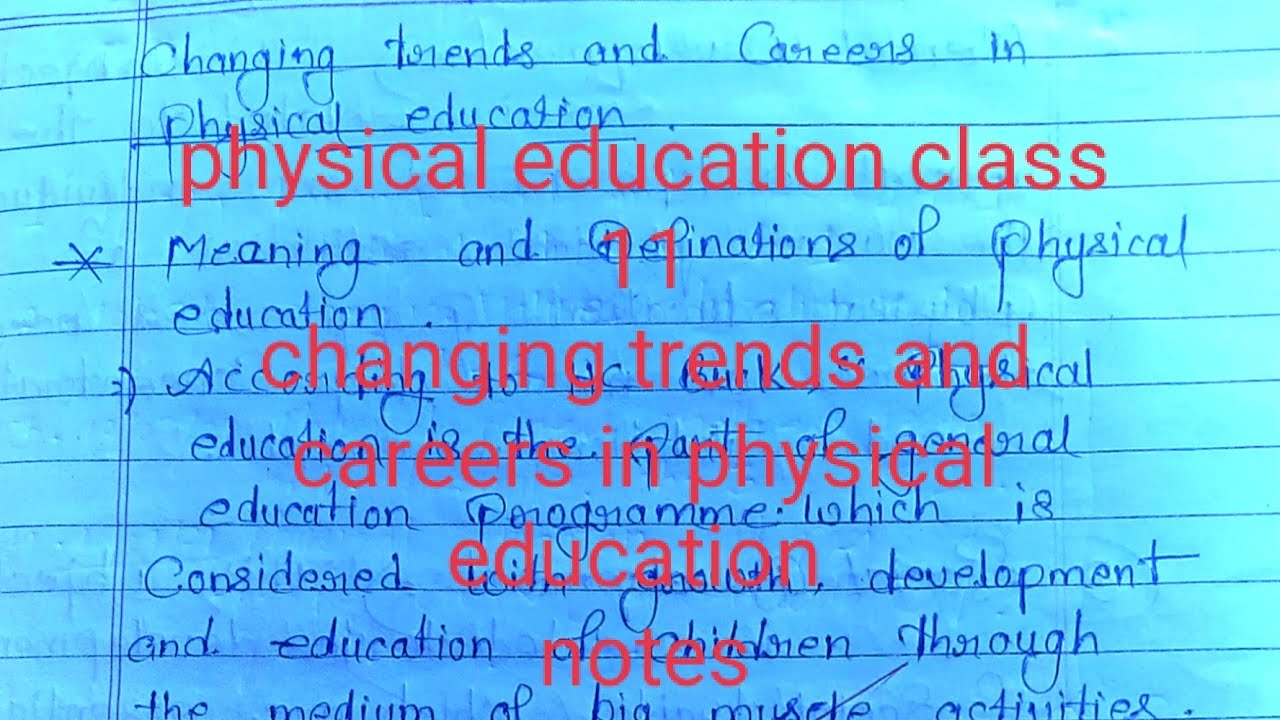 Changing trends and Careers in
Physical education.
physical education class
11
changing trends and
careers in physical
education
notes
* Meaning and Definations of Physical
education.
According to JC Physical
education is the part of general
education programme. which is
Considered with growth, development
and education of children through
the medium of big muscle activities.